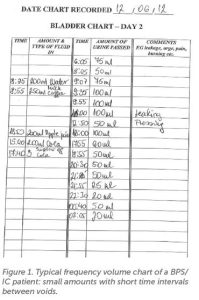 DATE CHART RECORDED 12 / 06 / 12
BLADDER CHART – DAY 2
TIME AMOUNT & TYPE OF FLUID IN TIME AMOUNT OF URINE PASSED COMMENTS EG leakage, urge, pain, burning etc.
6:05 75ml
8:05 50ml
8:25 200ml Water 9:07 75ml
8:55 250ml with coffee 9:25 100ml
8:55 100ml
100ml leaking
50ml
200ml Apple juice 100ml
15:00 200ml Cola 17:55 20ml
17:40 3 of cola 18:55 50ml
20:30 50ml
50ml
25ml
22:30 20ml
00:40 50ml
02:05 20ml
Figure 1. Typical frequency volume chart of a BPS/
IC patient: small amounts with short time intervals
between voids.